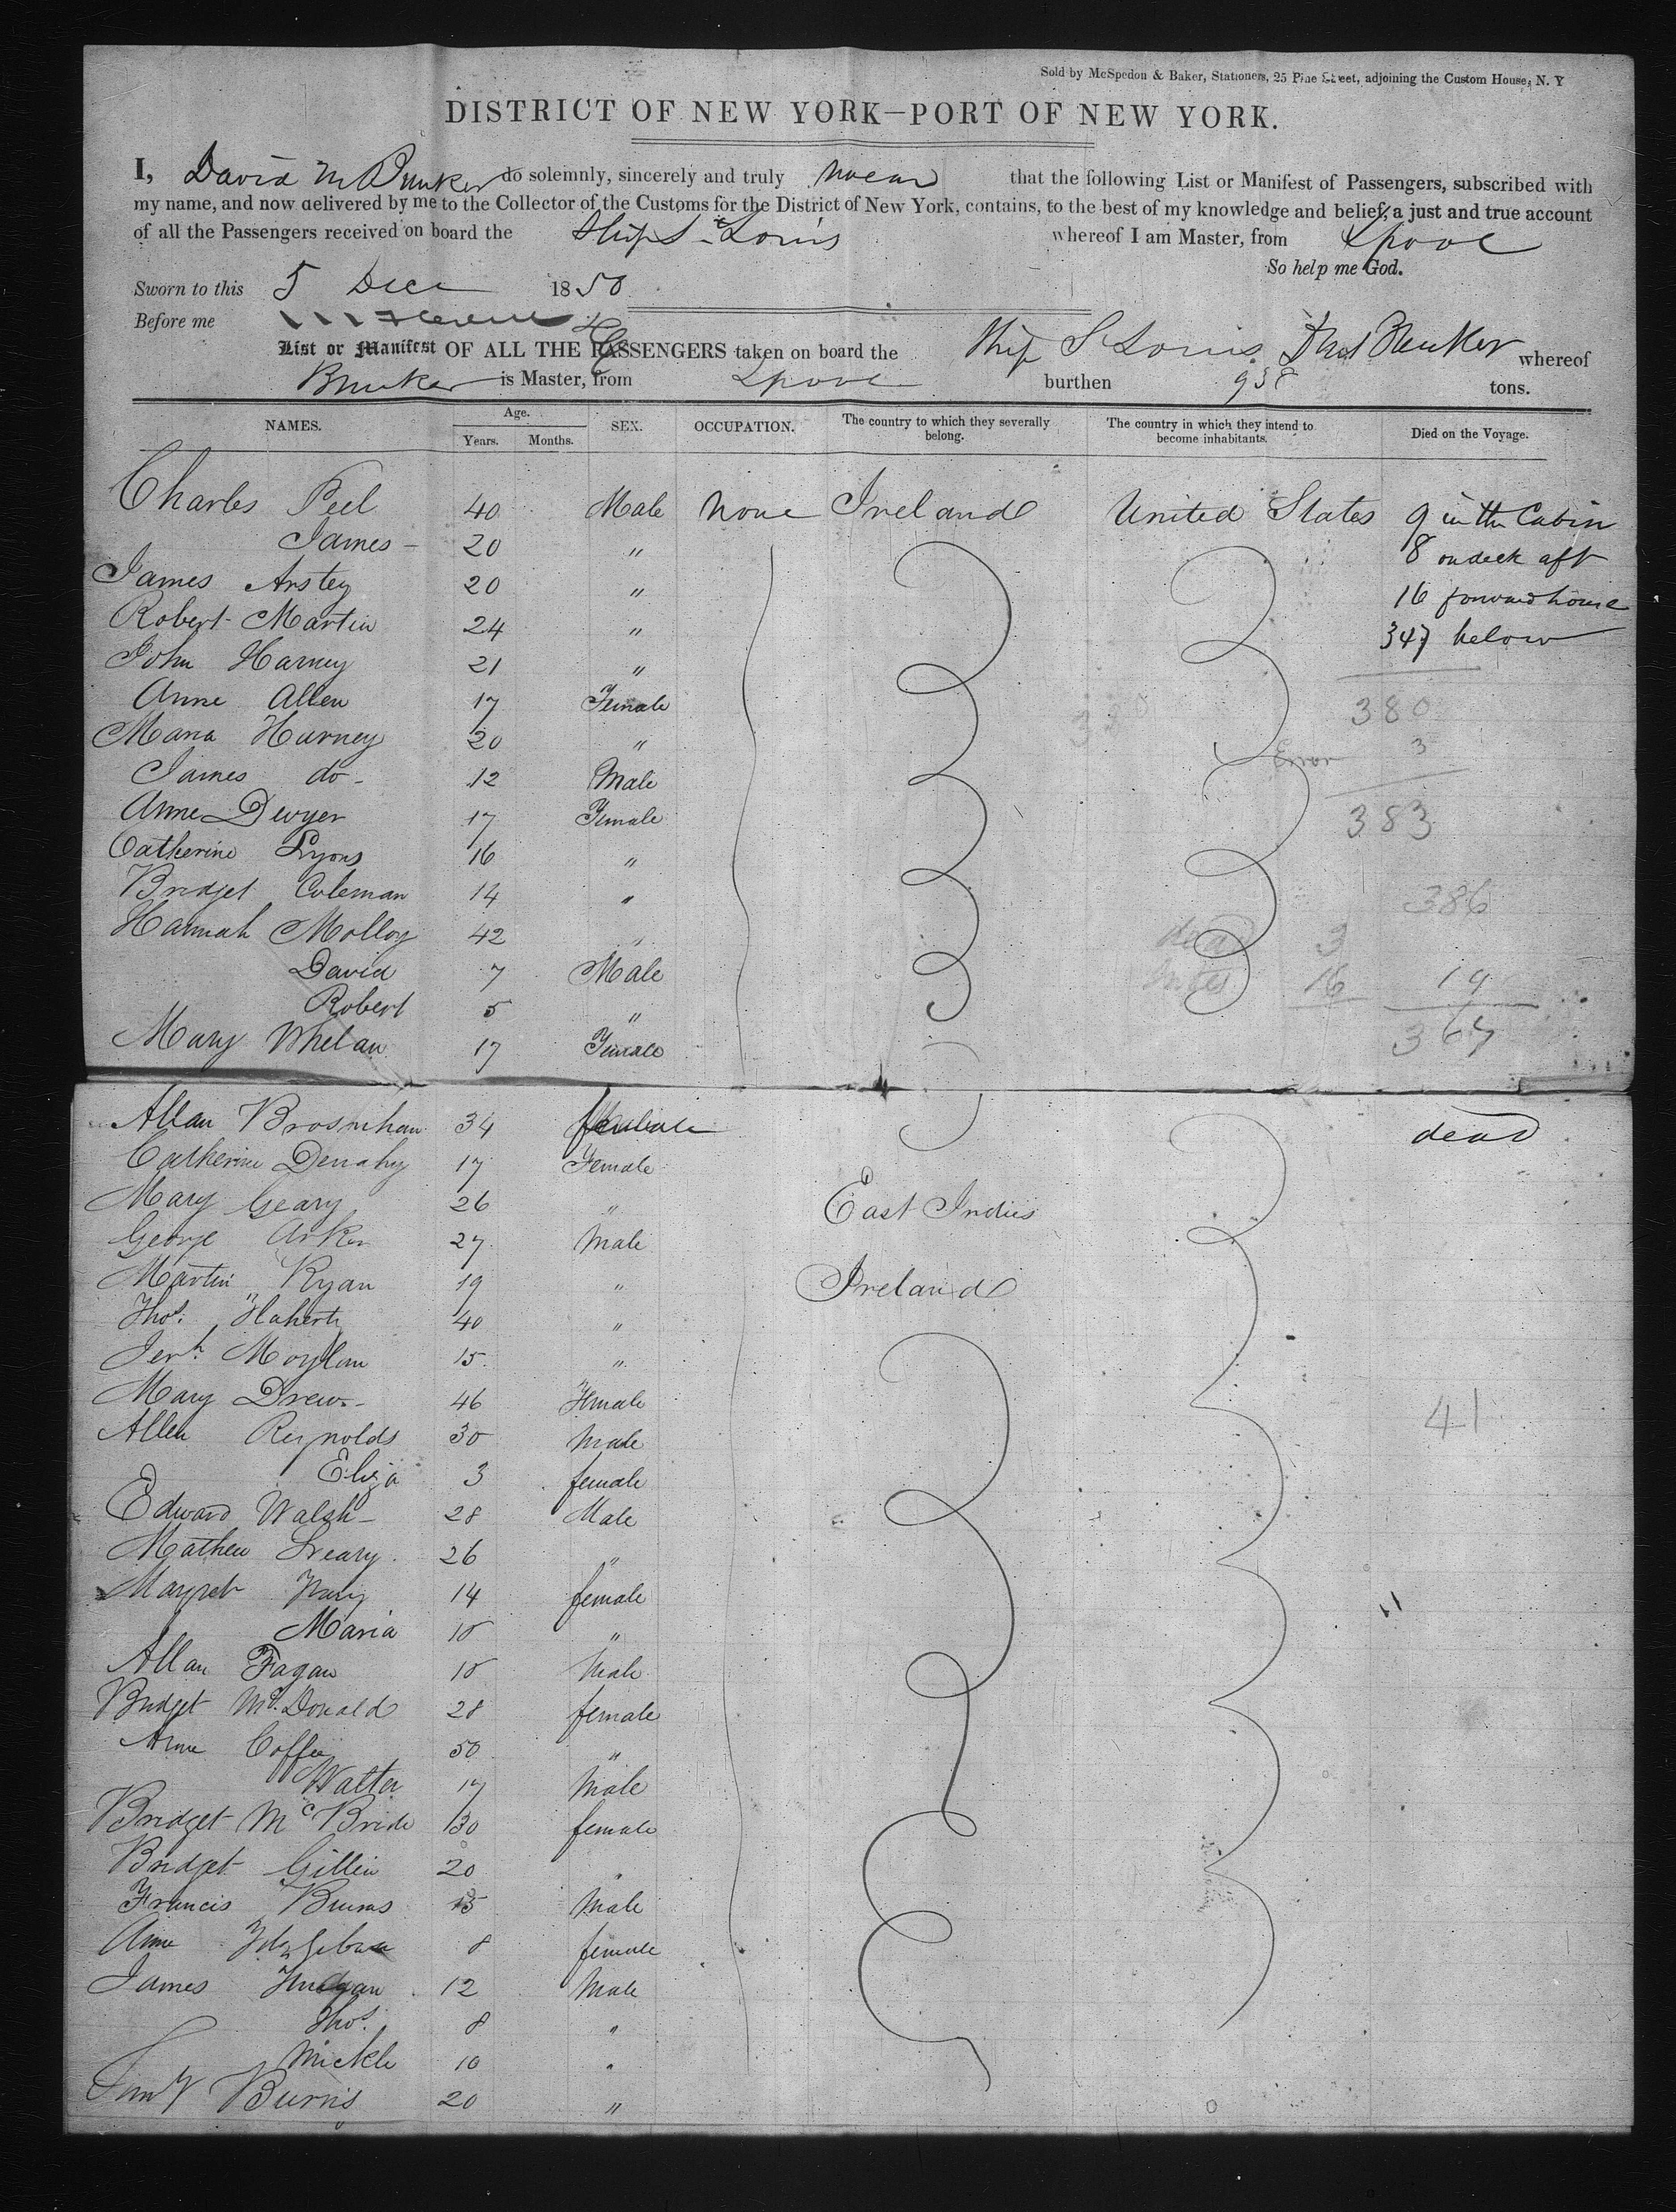 Sold by McSpedon & Baker, Stationers, 25 Pine Street, adjoining the Custom House, N. Y
DISTRICT OF NEW YORK—PORT OF NEW YORK.
I, David M Bunker do solemnly, sincerely and truly swear that the following List or Manifest of Passengers, subscribed with
my name, and now delivered by me to the Collector of the Customs for the District of New York, contains, to the best of my knowledge and belief, a just and true account
of all the Passengers received on board the Ship St Louis whereof I am Master, from Lpool
So help me God.
Sworn to this 5 Dec 1850
Before me
List or Manifest OF ALL THE PASSENGERS taken on board the Ship St Louis Bunker whereof
Bunker is Master, from Lpool burthen 938 tons.
NAMES. Age. Years. Months. SEX. OCCUPATION. The country to which they severally belong. The country in which they intend to become inhabitants. Died on the Voyage.
Charles Peel 40 Male None Ireland United States 9 in the Cabin
James - 20 " 8 on deck aft
James Anstey 20 " 16 forward house
Robert Martin 24 " 347 below
John Harney 21 "
Anne Allen 17 Female 380
Maria Harney 20 " Error 3
James do - 12 Male
Anne Dwyer 17 Female 383
Catherine Lyons 16 "
Bridget Coleman 14 " 386
Hannah Molloy 42 " dead 3
David 7 Male 16 19
Robert 5 "
Mary Whelan 17 Female 367
Allan Brosnihan 34 female dead
Catherine Denahy 17 Female
Mary Geary 26 " East Indies
George 27 Male
Martin Ryan 19 " Ireland
Thos. Flaherty 40 "
Jerh. Moylan 15 "
Mary Drew - 46 Female 41
Allen Reynolds 30 Male
Eliza 3 female
Edward Walsh - 28 Male
Mathew Leary 26 "
Margret 14 female
Maria 10 "
Allan Fagan 10 Male
Bridget Mc.Donald 28 female
Anne Coffee 50 "
Walter 17 Male
Bridget McBride 30 female
Bridget Gillin 20 "
Francis Burns Male
Anne 8 female
James 12 Male
Thos. 8 "
Mickle 10 "
Burns 20 "